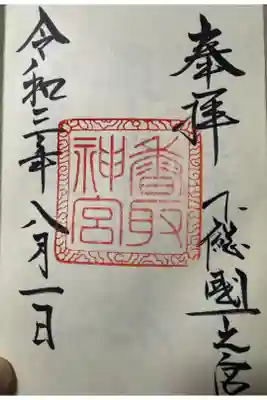 奉拝
下総國一之宮
香取
神宮
令和二年八月一日